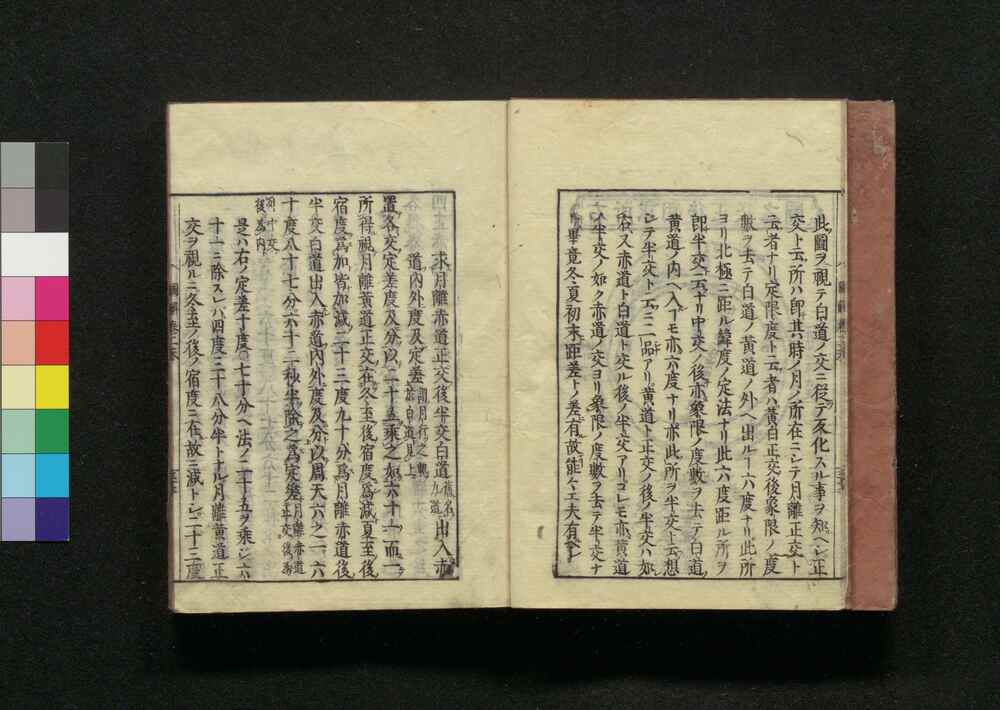 此圖ヲ視テ白道ノ交ニ從テ変化スル事ヲ知ヘシ正
交ト云所ハ即其時ノ月ノ所在ニシテ月離正交ト
云者ナリ定限度ト云者ハ黄白正交後象限ノ度
數ヲ去テ白道ノ黄道ノ外ヘ出ルヿ六度ナリ此所
ヨリ北極ニ距ル緯度ノ定法ナリ此六度距ル所ヲ
即半交ト云ナリ中交ノ後亦象限ノ度數ヲ去テ白道
黄道ノ内ヘ入ルモ亦六度ナリ亦此所ヲ半交ト云想
シテ半交ト云ニ二品アリ黄道ト正交ノ後ノ半交ハ如
右又赤道ト白道ト交ル後ノ半交アリコレモ亦黄道
ノ半交ノ如ク赤道ノ交ヨリ象限ノ度數ヲ去テ半交ナ
畢竟冬夏初末距差トノ差有故能々工夫有ヘシ
求月離赤道正交後半交白道舊名九道出入赤
道内外度及定差
置各交定差度及分以二十五乘之如六十一而一
所得視月離黄道正交在冬至後宿度爲減夏至後
宿度爲加皆加減二十三度九十分爲月離赤道後
半交白道出入赤道内外度及分以周天六之一六
十度八十七分六十二秒半除之爲定差月離赤道正交後爲
外中交後爲内
是ハ右ノ定差十度〇七十分ヘ法ノ二十五ヲ乘シ六
十一ニ除スレバ四度三十八分半トナル月離黄道正
交ヲ視ルニ冬至ノ後ノ宿度ニ在故ニ減トシ二十三度